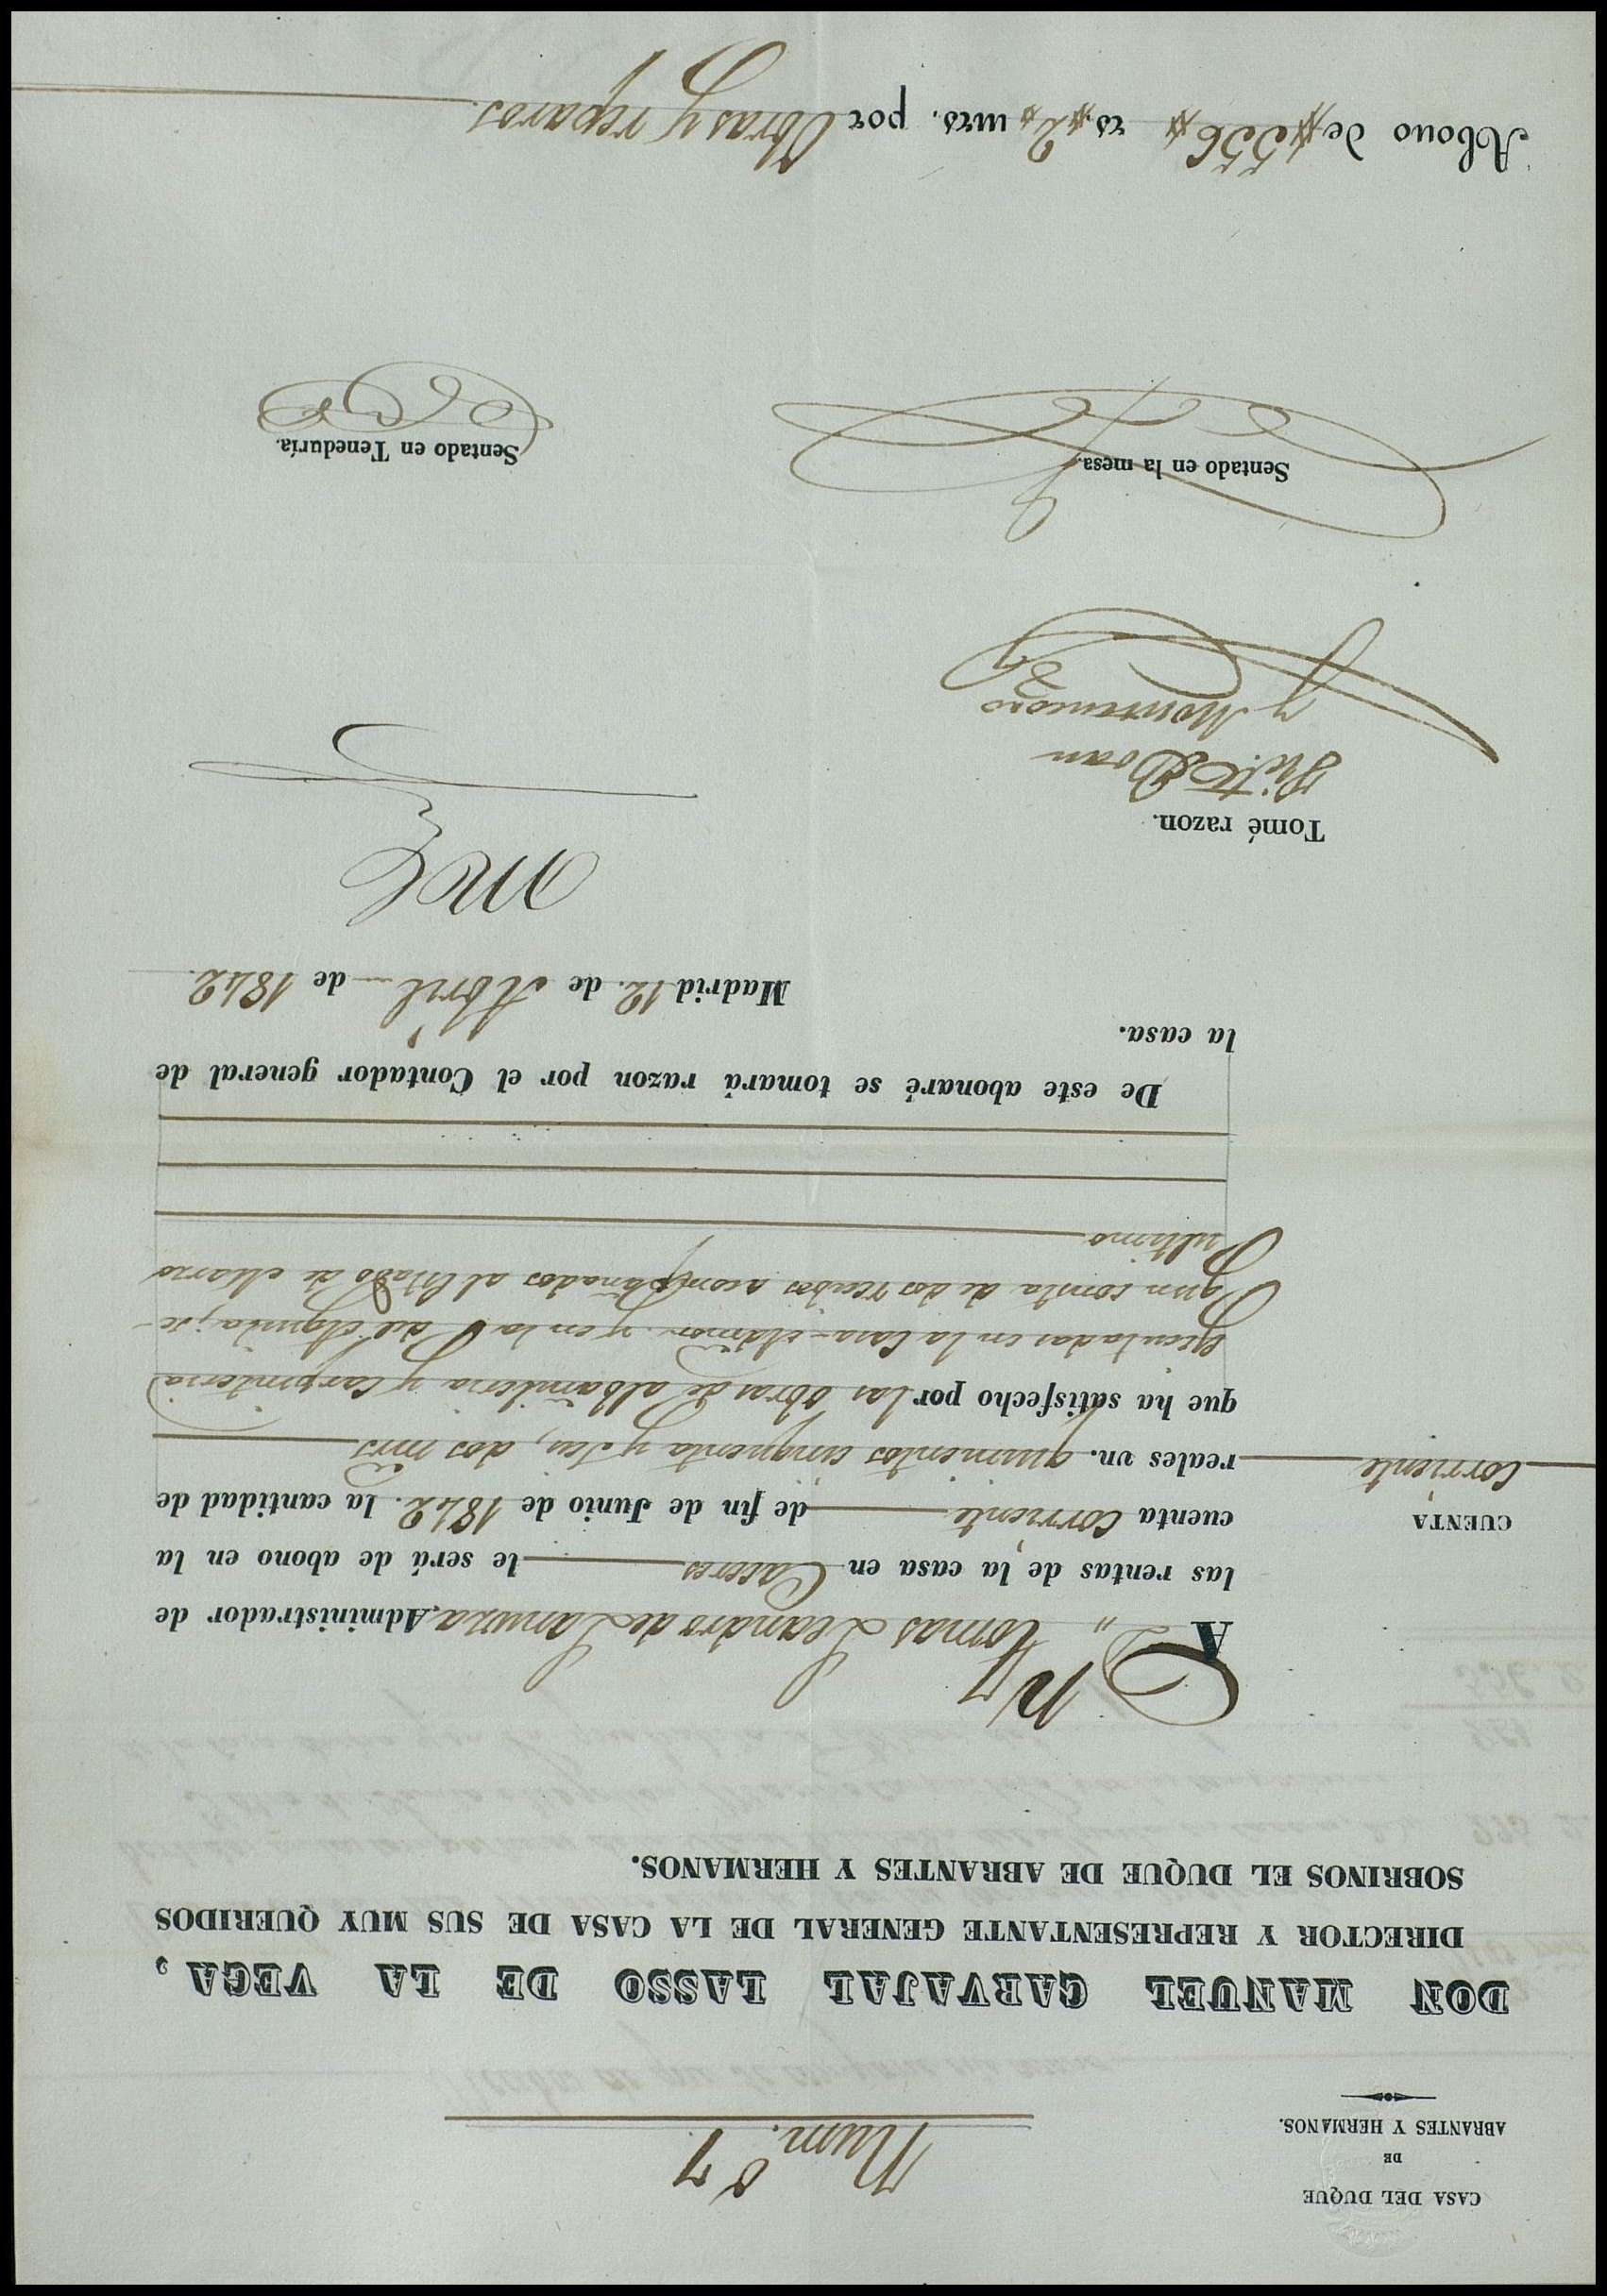 CASA DEL DUQUE
DE
ABRANTES Y HERMANOS.
Num.º 7
DON MANUEL CARVAJAL LASSO DE LA VEGA,
DIRECTOR Y REPRESENTANTE GENERAL DE LA CASA DE SUS MUY QUERIDOS
SOBRINOS EL DUQUE DE ABRANTES Y HERMANOS.
A Dn Tomas Leandro de Lanuza Administrador de
las rentas de la casa en Caceres le será de abono en la
CUENTA
cuenta corriente de fin de Junio de 1842. la cantidad de
Corriente
reales vn. quinientos cinquenta y seis, dos mrs
que ha satisfecho por las obras de albañileria y Carpinteria
egecutadas en la Casa-Mamor y en la del Aguila; se-
gun consta de dos recibos acompañados al Estado de Marzo
ultimo
De este abonaré se tomará razon por el Contador general de
la casa.
Madrid 12. de Abril de 1842.
Tomé razon.
y Montenegro
Sentado en la mesa.
Sentado en Teneduría.
Abono de 556 rs. 2 mrs. por Obras y reparos.